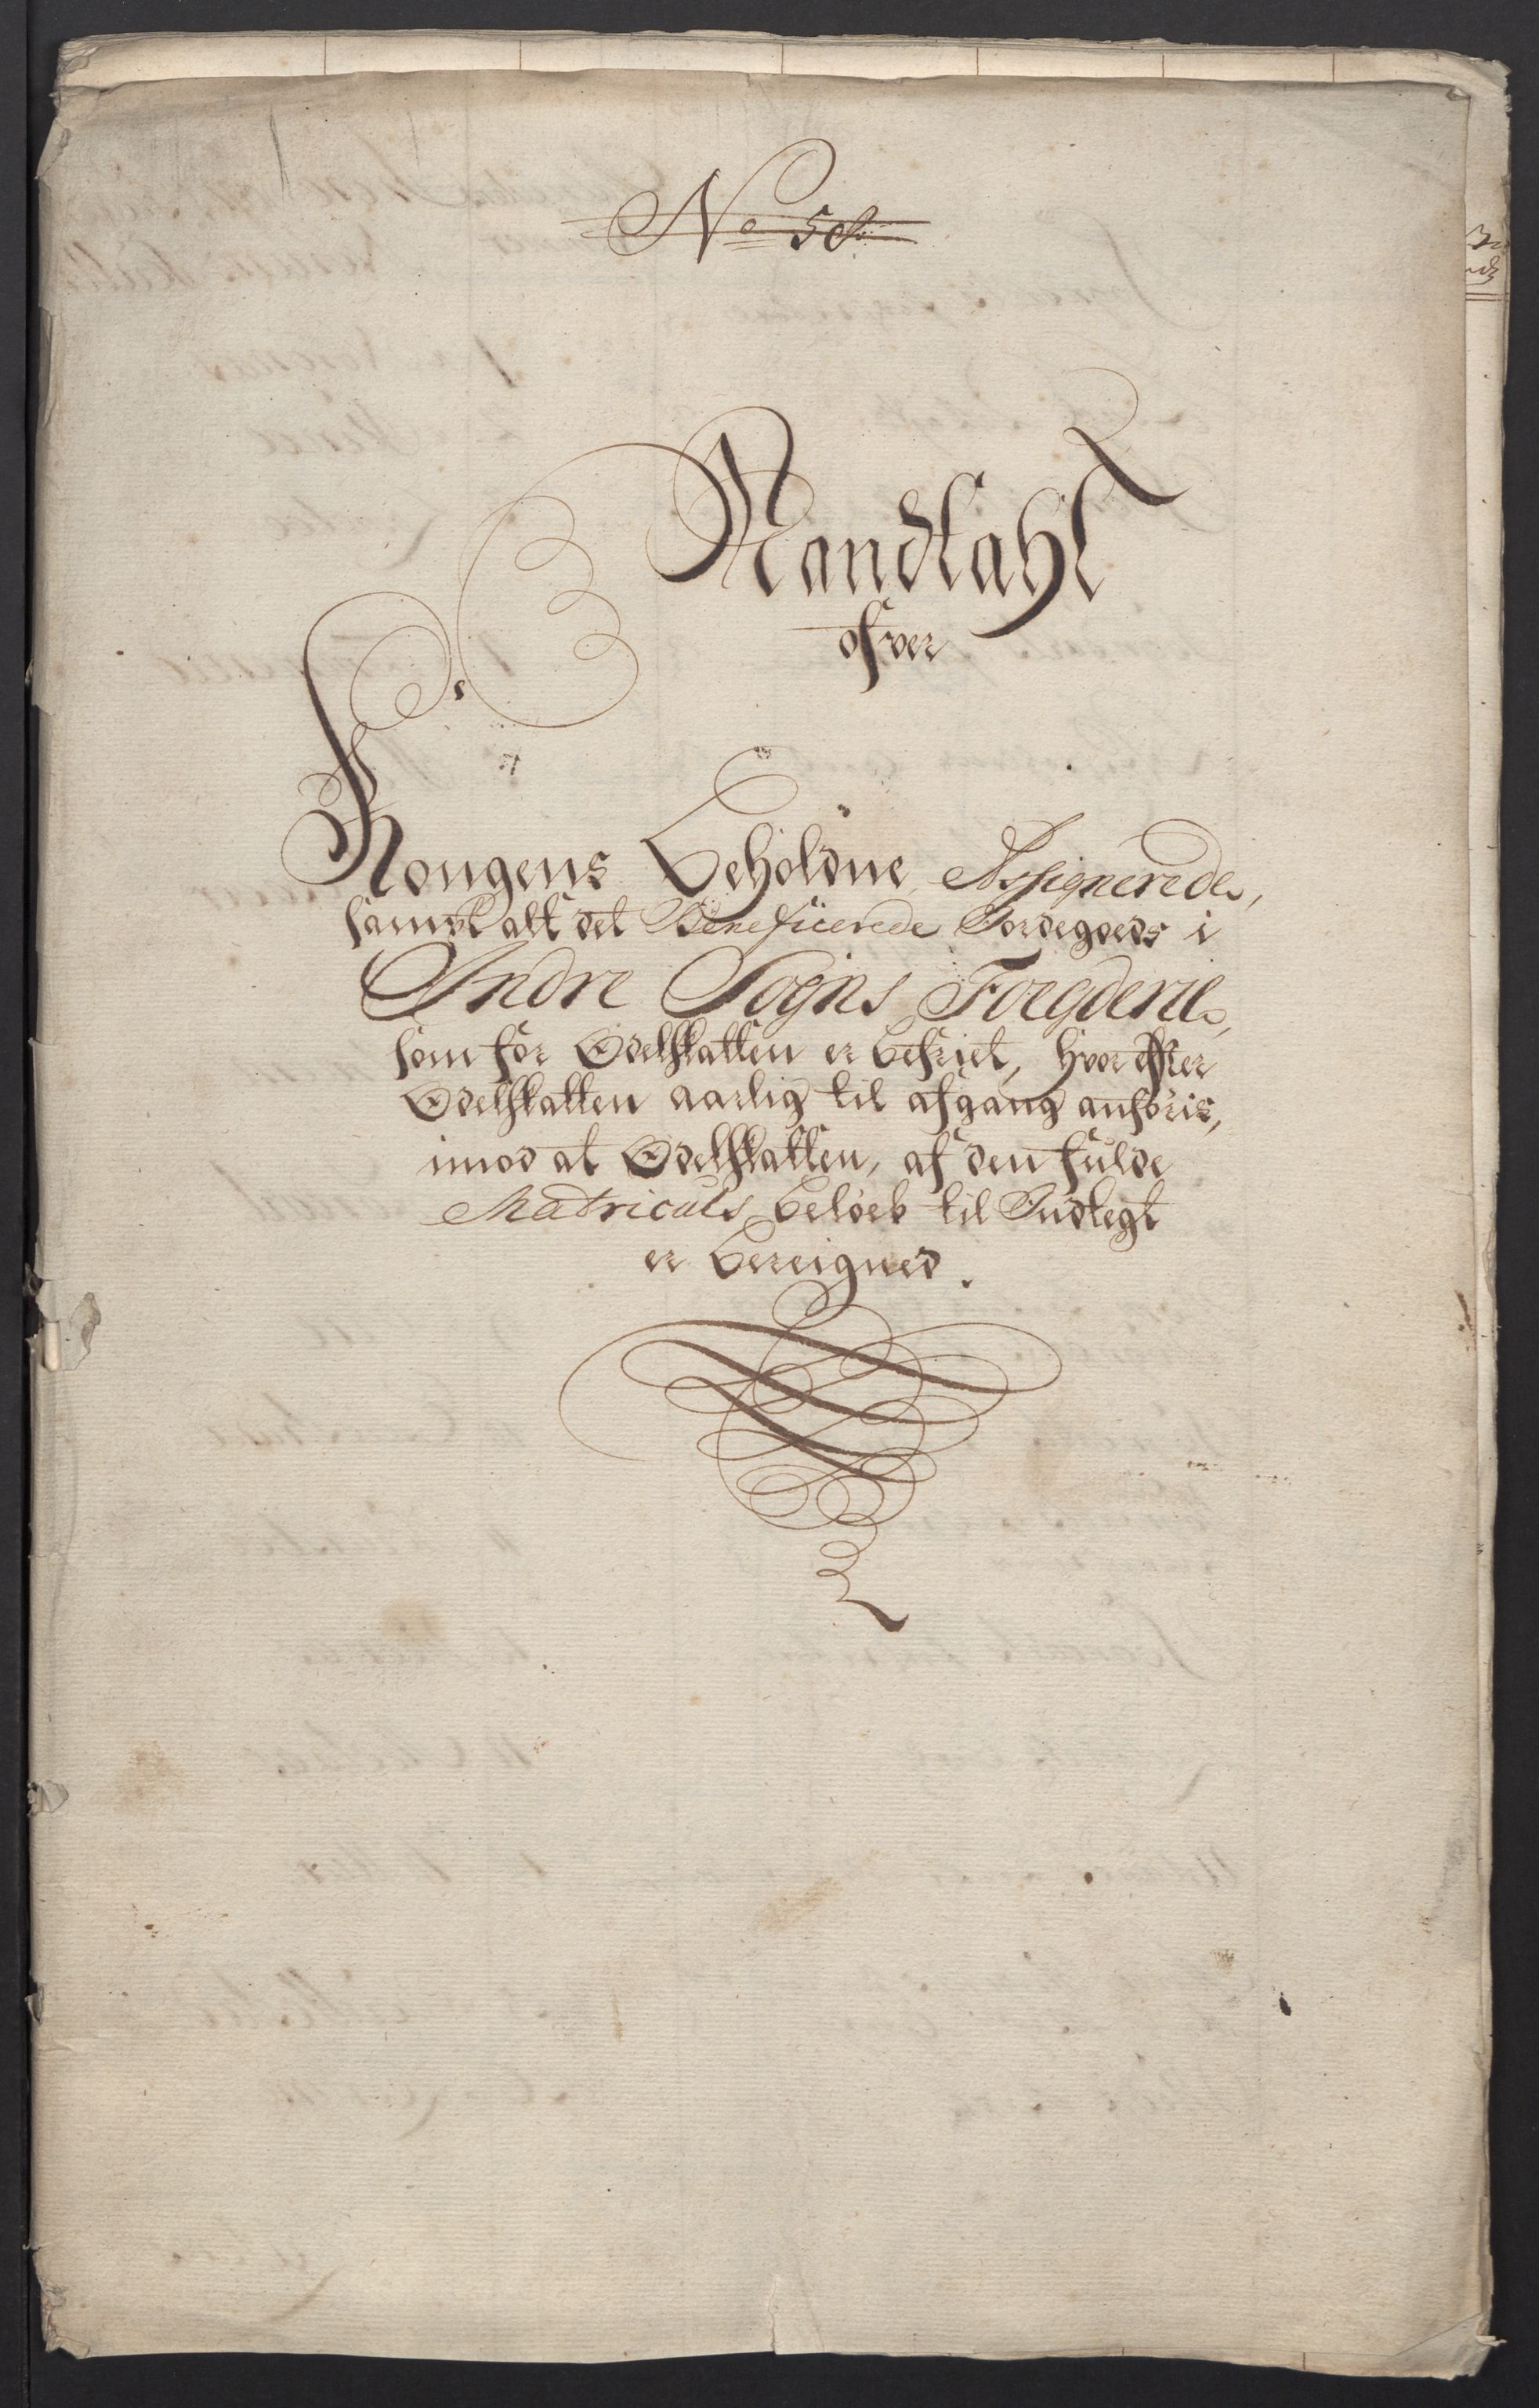 No 58.
Mandtahl
ofver
Kongens Beholdne, Assignerede,
sambt alt det Beneficerede Jordegoeds i
Indre Sogns Foegderie,
som for Odelskatten er befriet, hvor effter
Odelskatten aarlig til afgang anføris,
imod at Odelskatten, af den fulde
Matriculs beløeb til Indtegt
er bereigned.